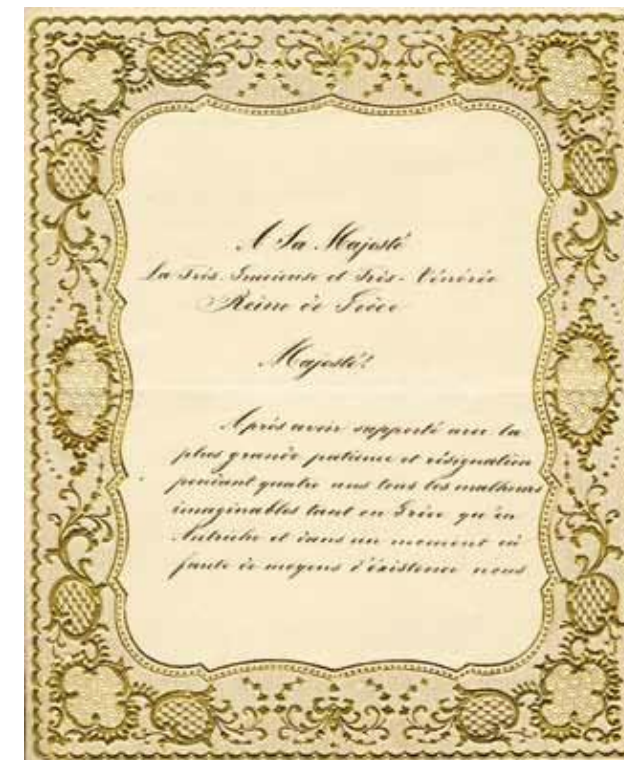 A Sa Majesté
La Très-Gracieuse et Très-Vénérée
Reine de Grèce
Majesté!
Après avoir supporté avec la
plus grande patience et résignation
pendant quatre ans tous les malheurs
imaginables tant en Grèce qu'en
Autriche et dans un moment où
faute de moyens d'éxistence nous